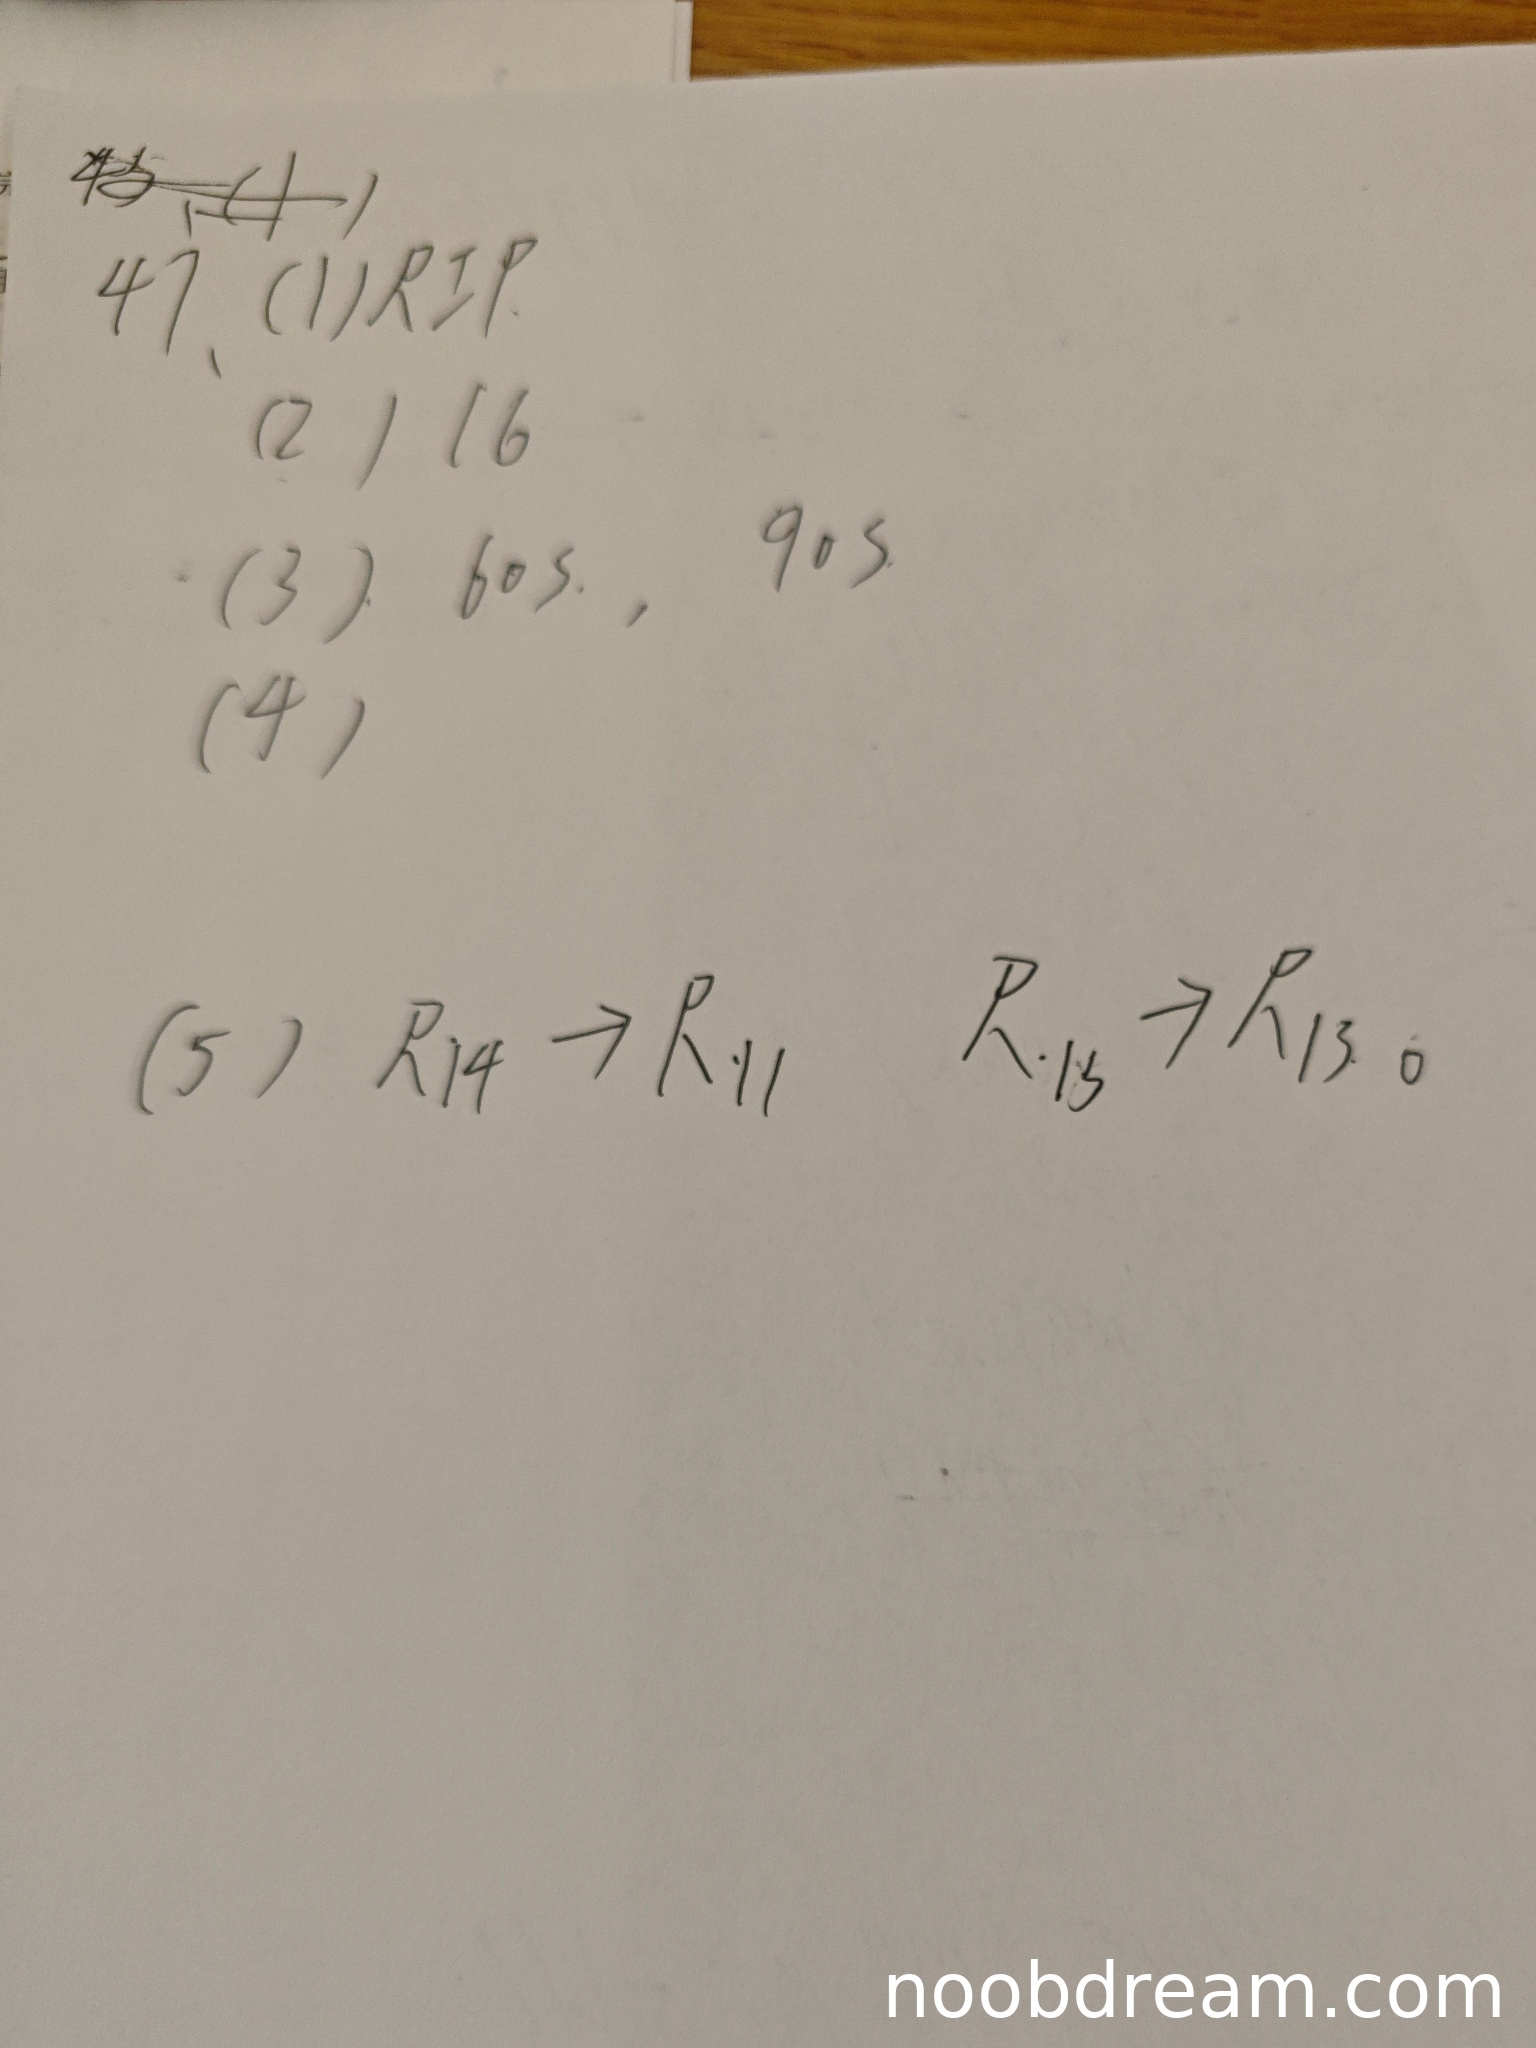 47、(1) RIP.
(2) 16
(3). 60s. , 90s.
(4)
(5) R14 → R11 R15 → R13。
noobdream.com